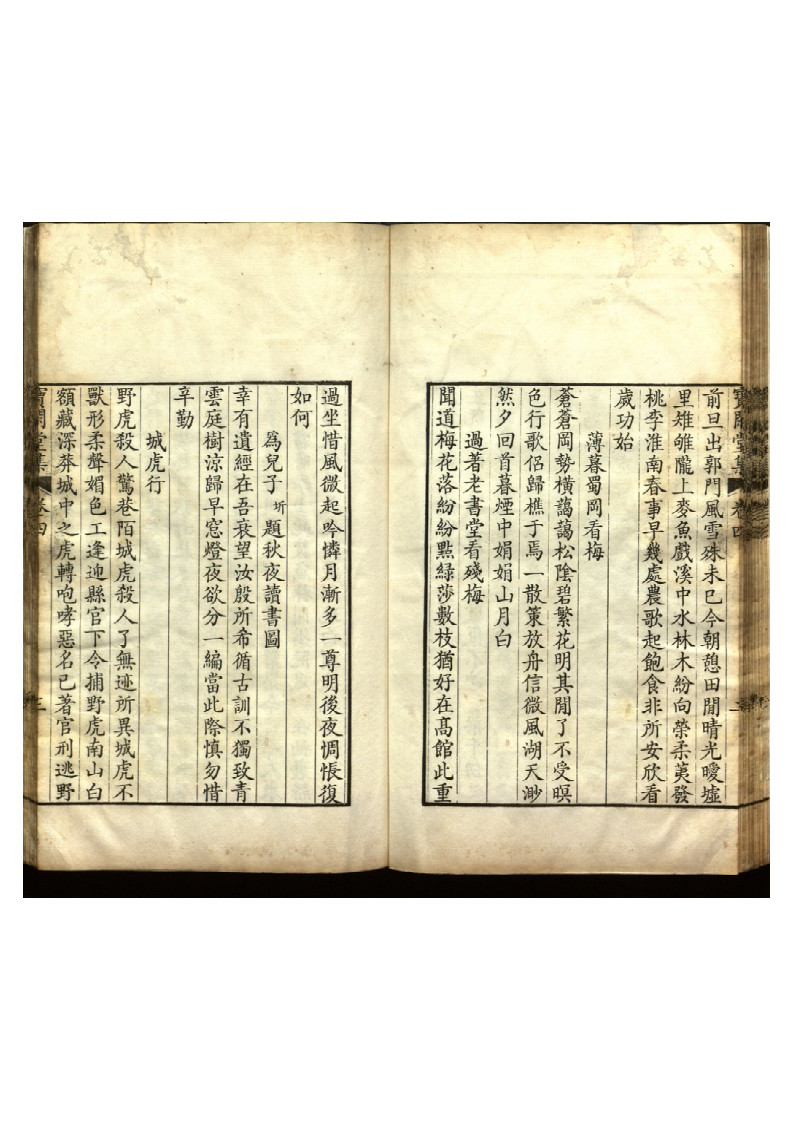 寶閑堂集 卷四
前旦出郭門風雪殊未已今朝憩田閒晴光曖墟
里雉雊隴上麥魚戲溪中水林木紛向榮柔荑發
桃李淮南春事早幾處農歌起飽食非所安欣看
歲功始
薄暮蜀岡看梅
蒼蒼岡勢橫藹藹松陰碧繁花明其閒了不受暝
色行歌侶歸樵于焉一散策放舟信微風湖天渺
然夕回首暮煙中娟娟山月白
過著老書堂看殘梅
聞道梅花落紛紛點綠莎數枝猶好在高館此重
過坐惜風微起吟憐月漸多一尊明後夜惆悵復
如何
爲兒子圻題秋夜讀書圖
幸有遺經在吾衰望汝殷所希循古訓不獨致青
雲庭樹涼歸早窓燈夜欲分一編當此際慎勿惜
辛勤
城虎行
野虎殺人驚巷陌城虎殺人了無迹所異城虎不
獸形柔聲媚色工逢迎縣官下令捕野虎南山白
額藏深莽城中之虎轉咆哮惡名已著官刑逃野
寶閑堂集 卷四 三